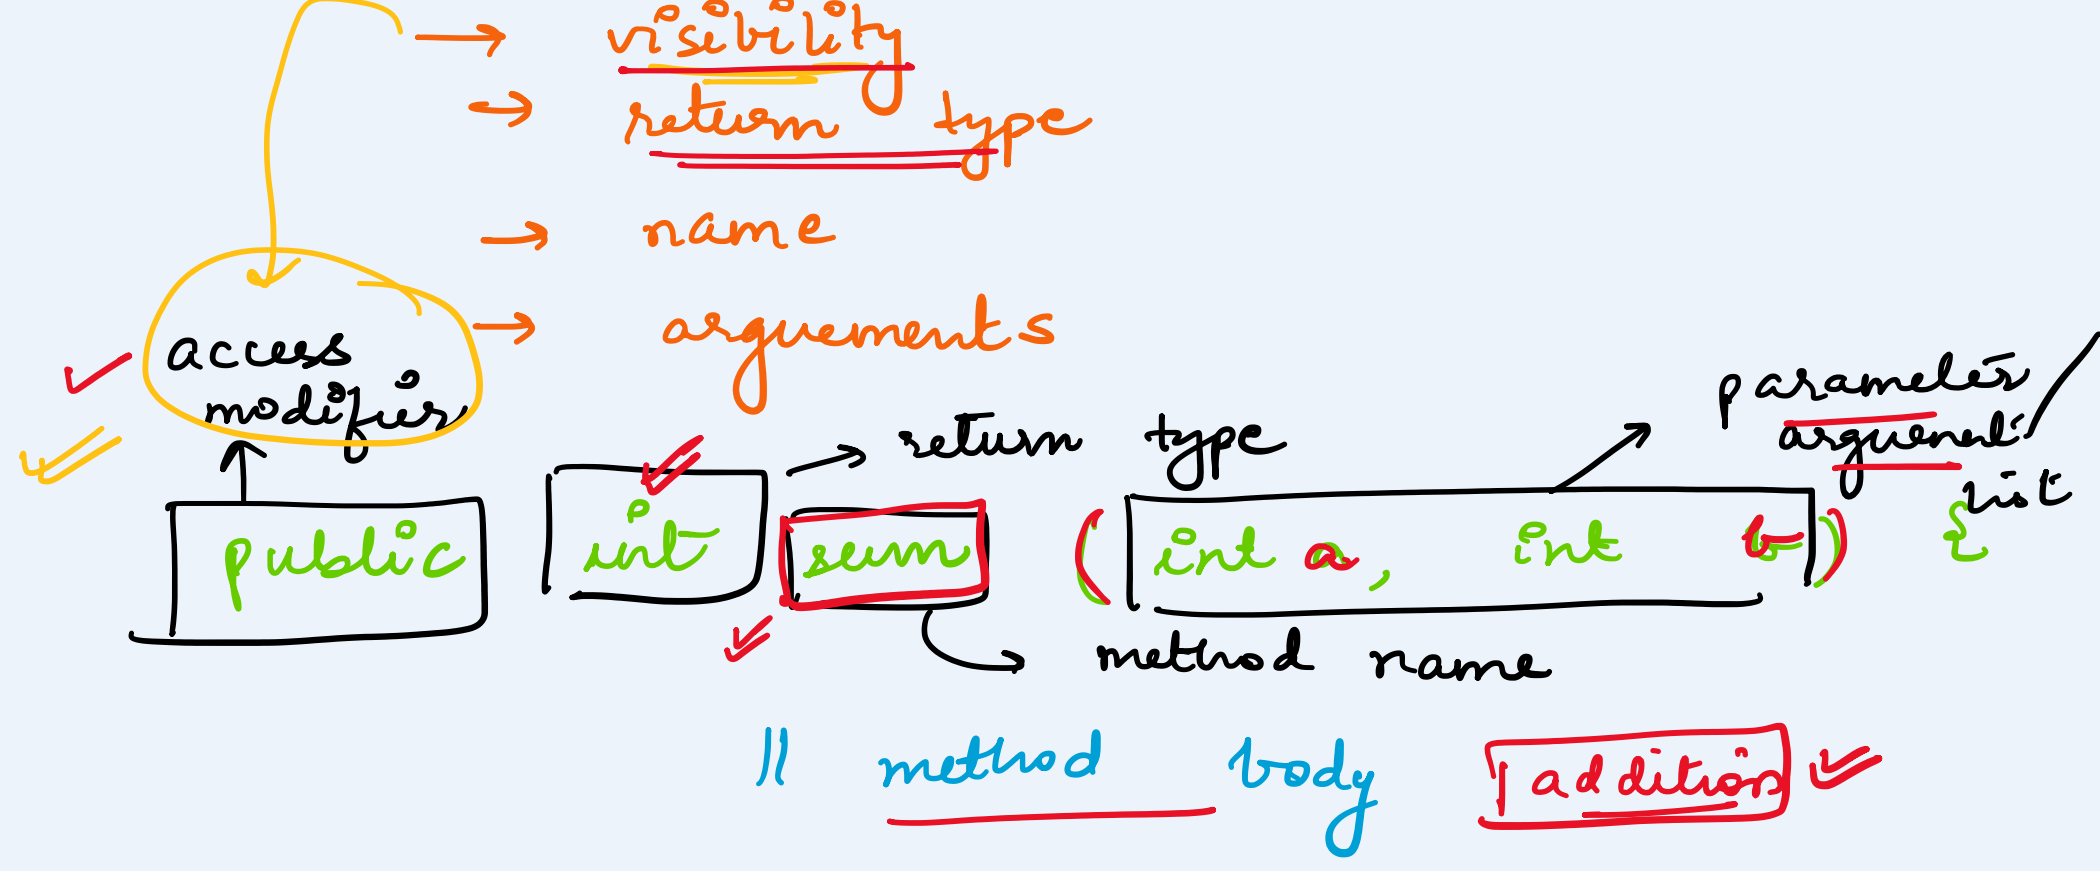 → visibility
→ return type
→ name
→ arguements
access
modifier
→ return type
parameter
arguement
list
public int sum (int a, int b) {
method name
// method body
addition